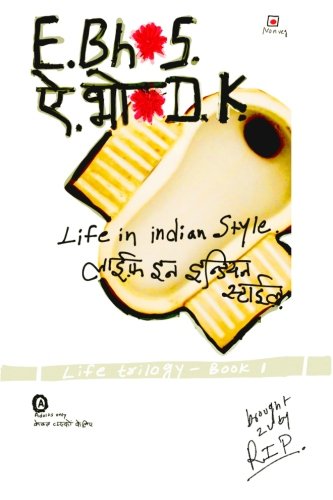 Nonveg
E.Bh S.
ऐ.भो D.K.
Life in indian Style.
लाईफ़ इन इन्डियन
स्टाईल
Life trilogy - Book 1
A
Adults only
केवल वयस्को के लिए
brought
2 u by
R.I.P.